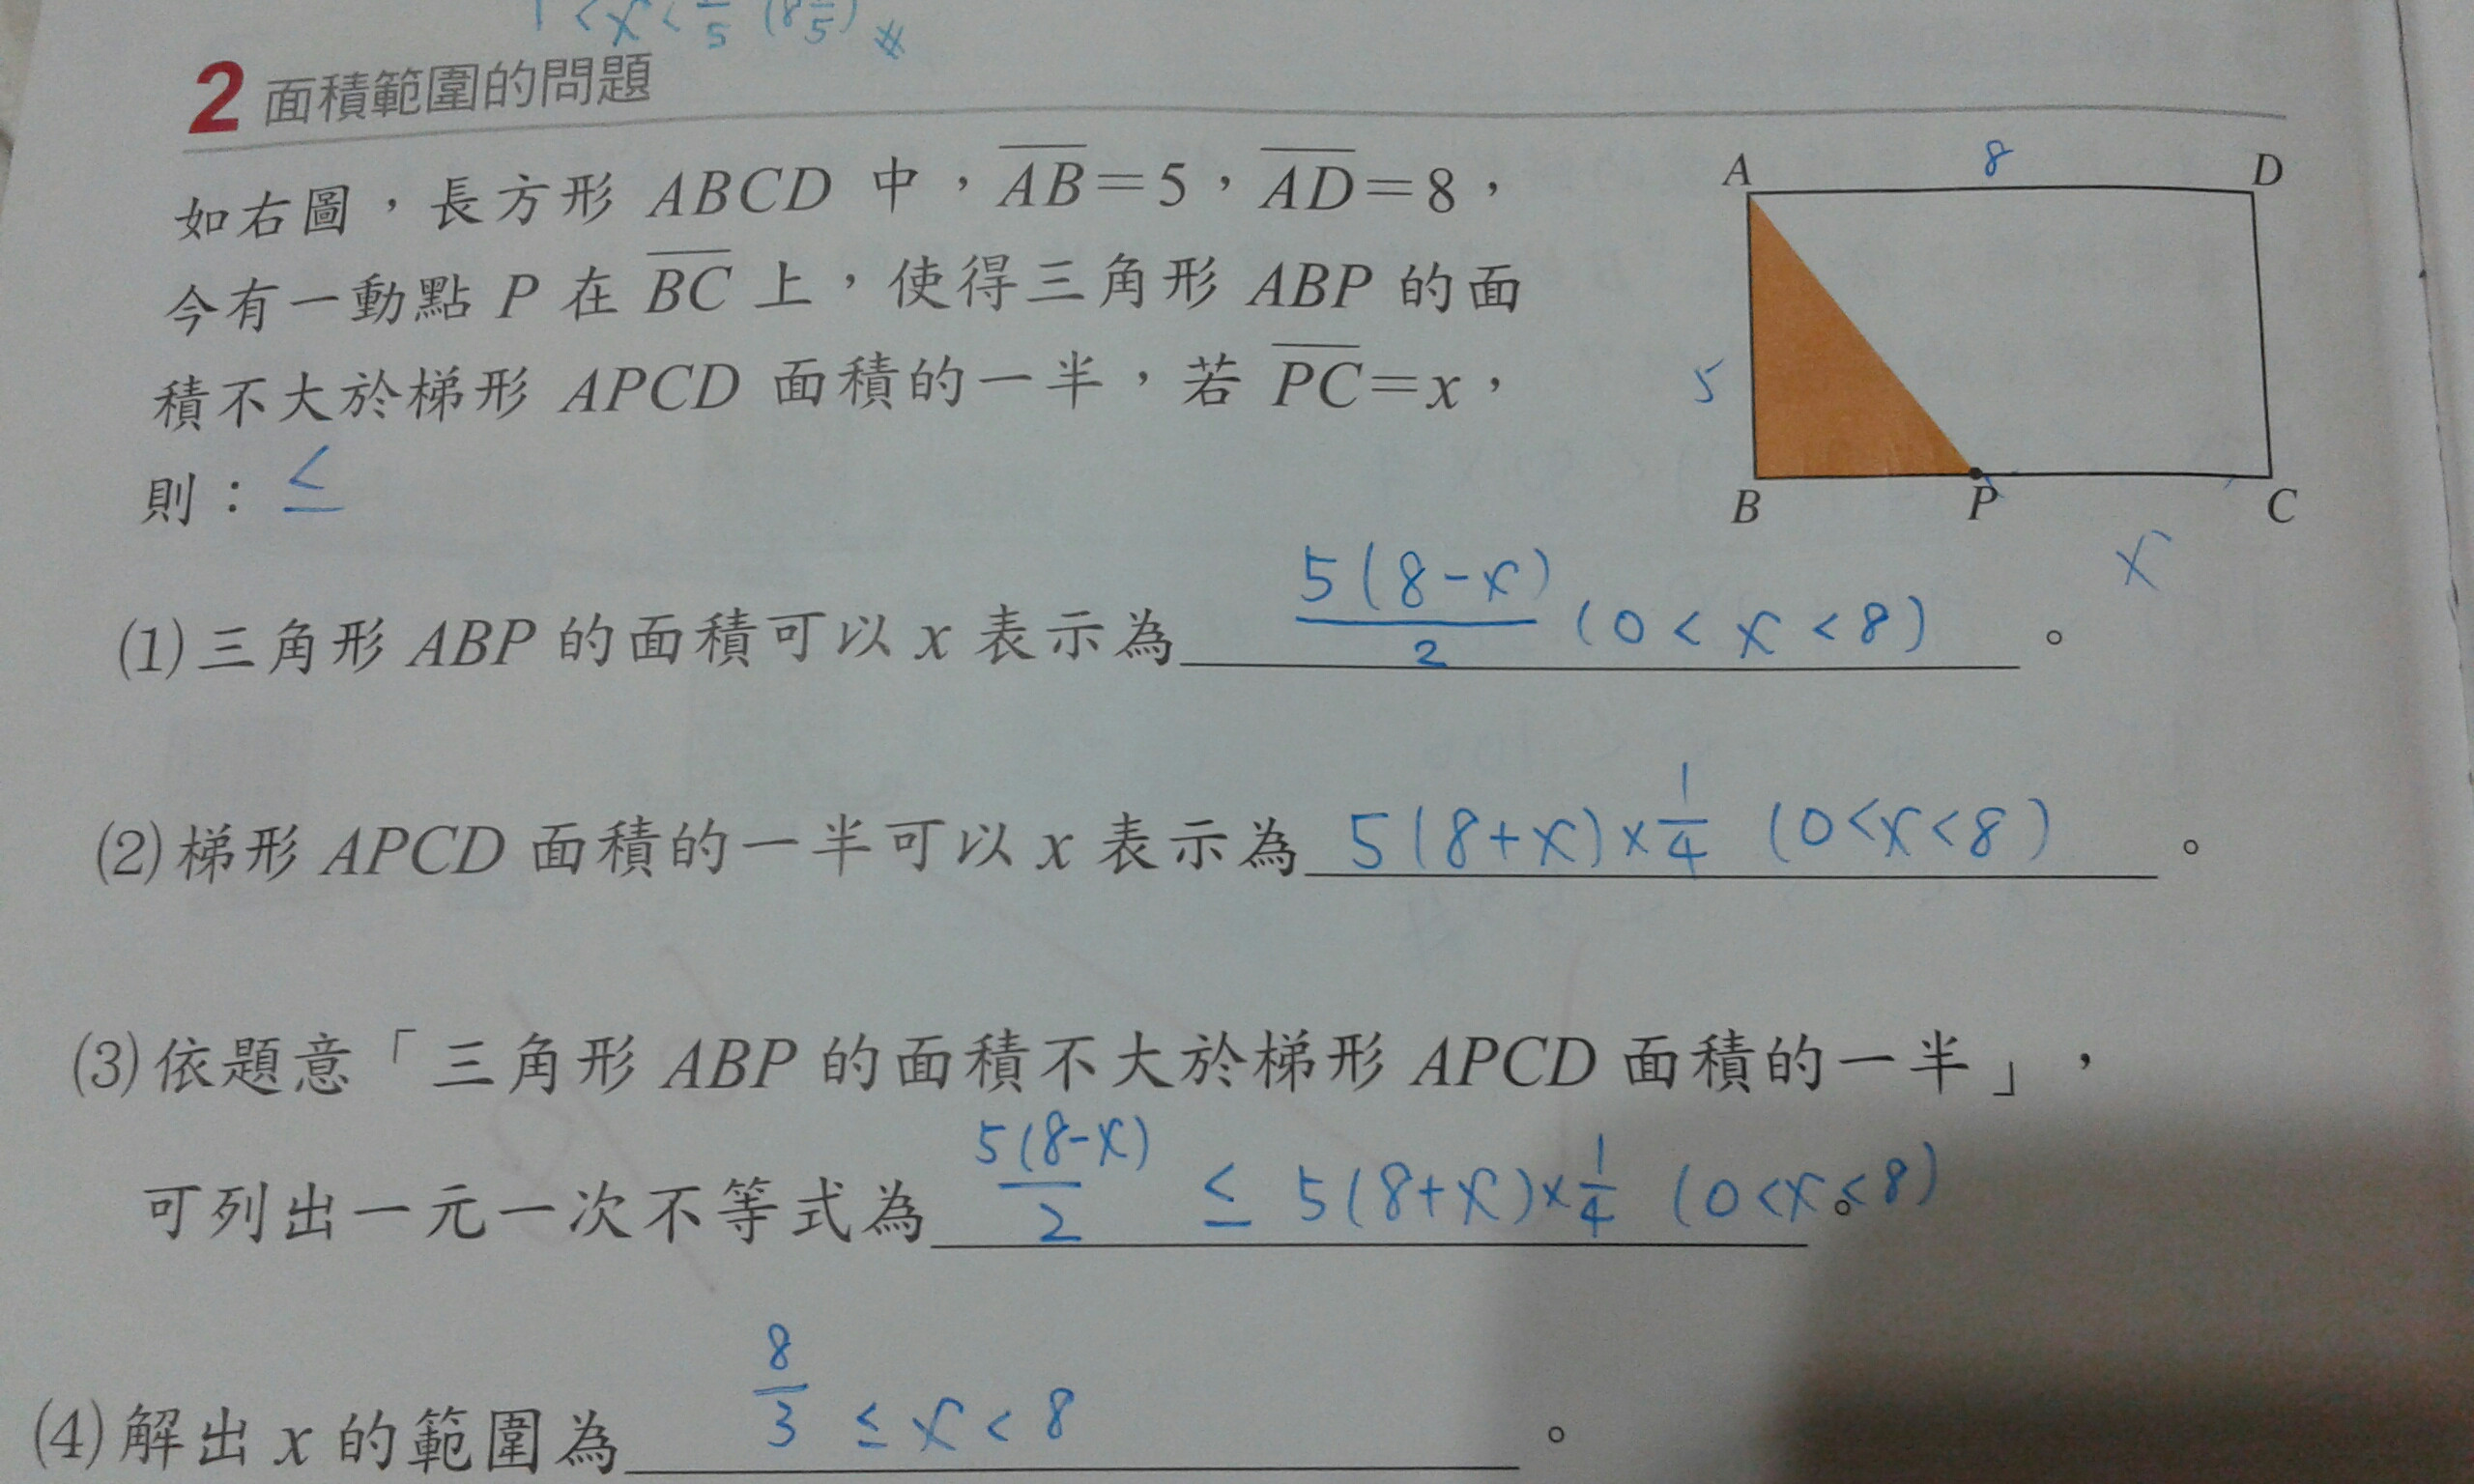 1 < x < /5 (8 /5) #
2 面積範圍的問題
如右圖，長方形 ABCD 中，AB=5，AD=8，
今有一動點 P 在 BC 上，使得三角形 ABP 的面
積不大於梯形 APCD 面積的一半，若 PC=x，
則：≤
A 8 D
5
B P C
x
(1)三角形 ABP 的面積可以 x 表示為 5(8-x)/2 (0<x<8) 。
(2)梯形 APCD 面積的一半可以 x 表示為 5(8+x)×1/4 (0<x<8) 。
(3)依題意「三角形 ABP 的面積不大於梯形 APCD 面積的一半」，
可列出一元一次不等式為 5(8-x)/2 ≤ 5(8+x)×1/4 (0<x<8) 。
(4)解出 x 的範圍為 8/3 ≤ x < 8 。